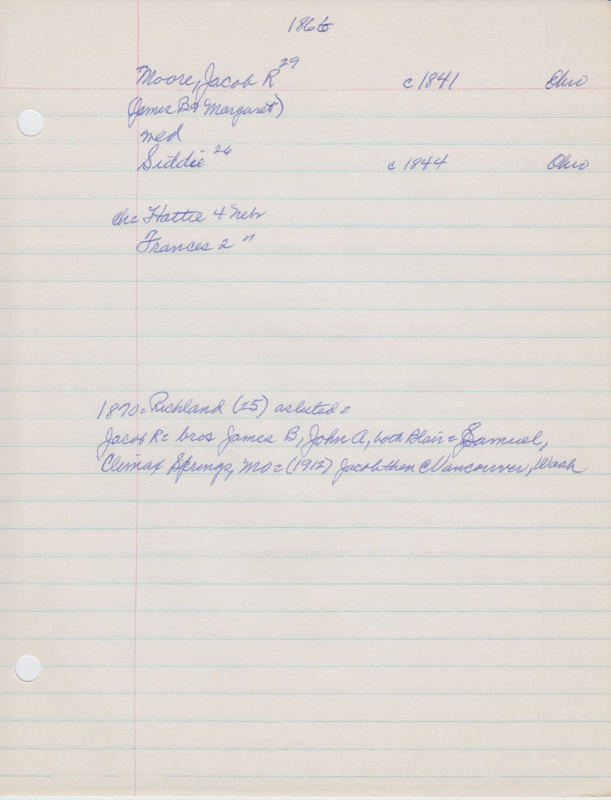 1866
Moore, Jacob R 29 c 1841 Ohio
(James B & Margaret)
med
Siddie 26 c 1844 Ohio
ch = Hattie 4 Nebr
Frances 2 "
1870 = Richland (25) as listed =
Jacob R = bros James B, John A, both Blair = Samuel,
Climax Springs, Mo = (1912) Jacob then @ Vancouver, Wash